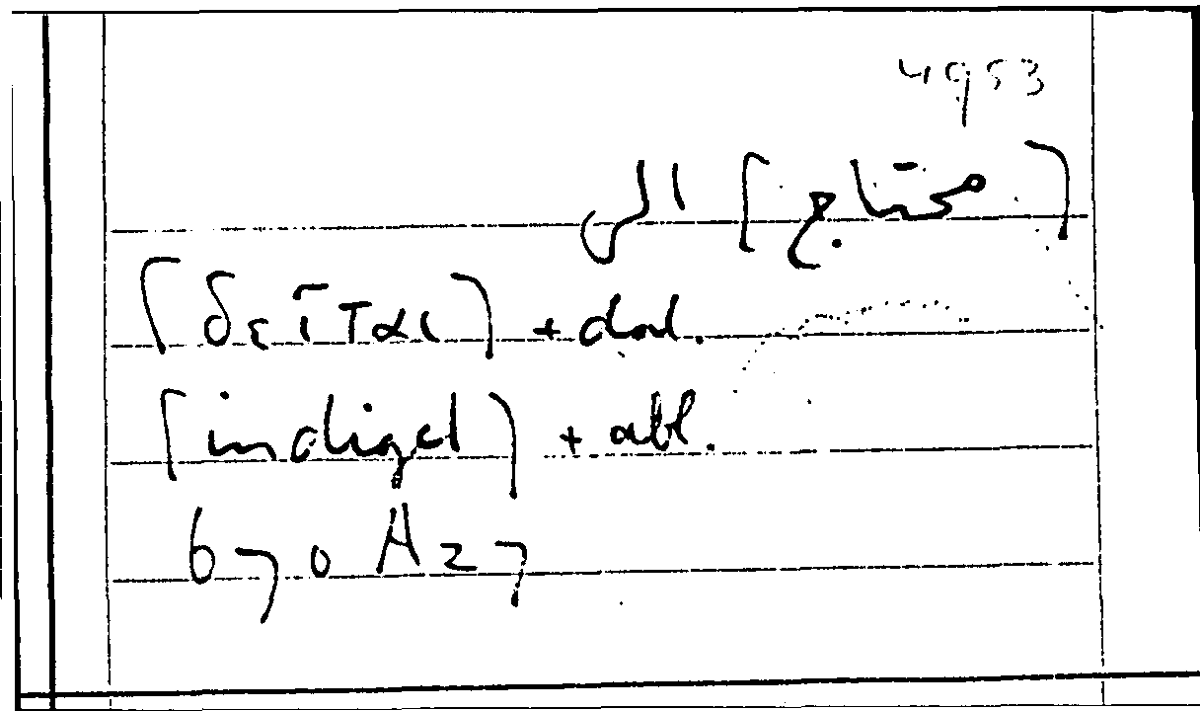 4953
[محتاج] الى
[δεῖται] + dat.
[indiget] + abl.
670 A27